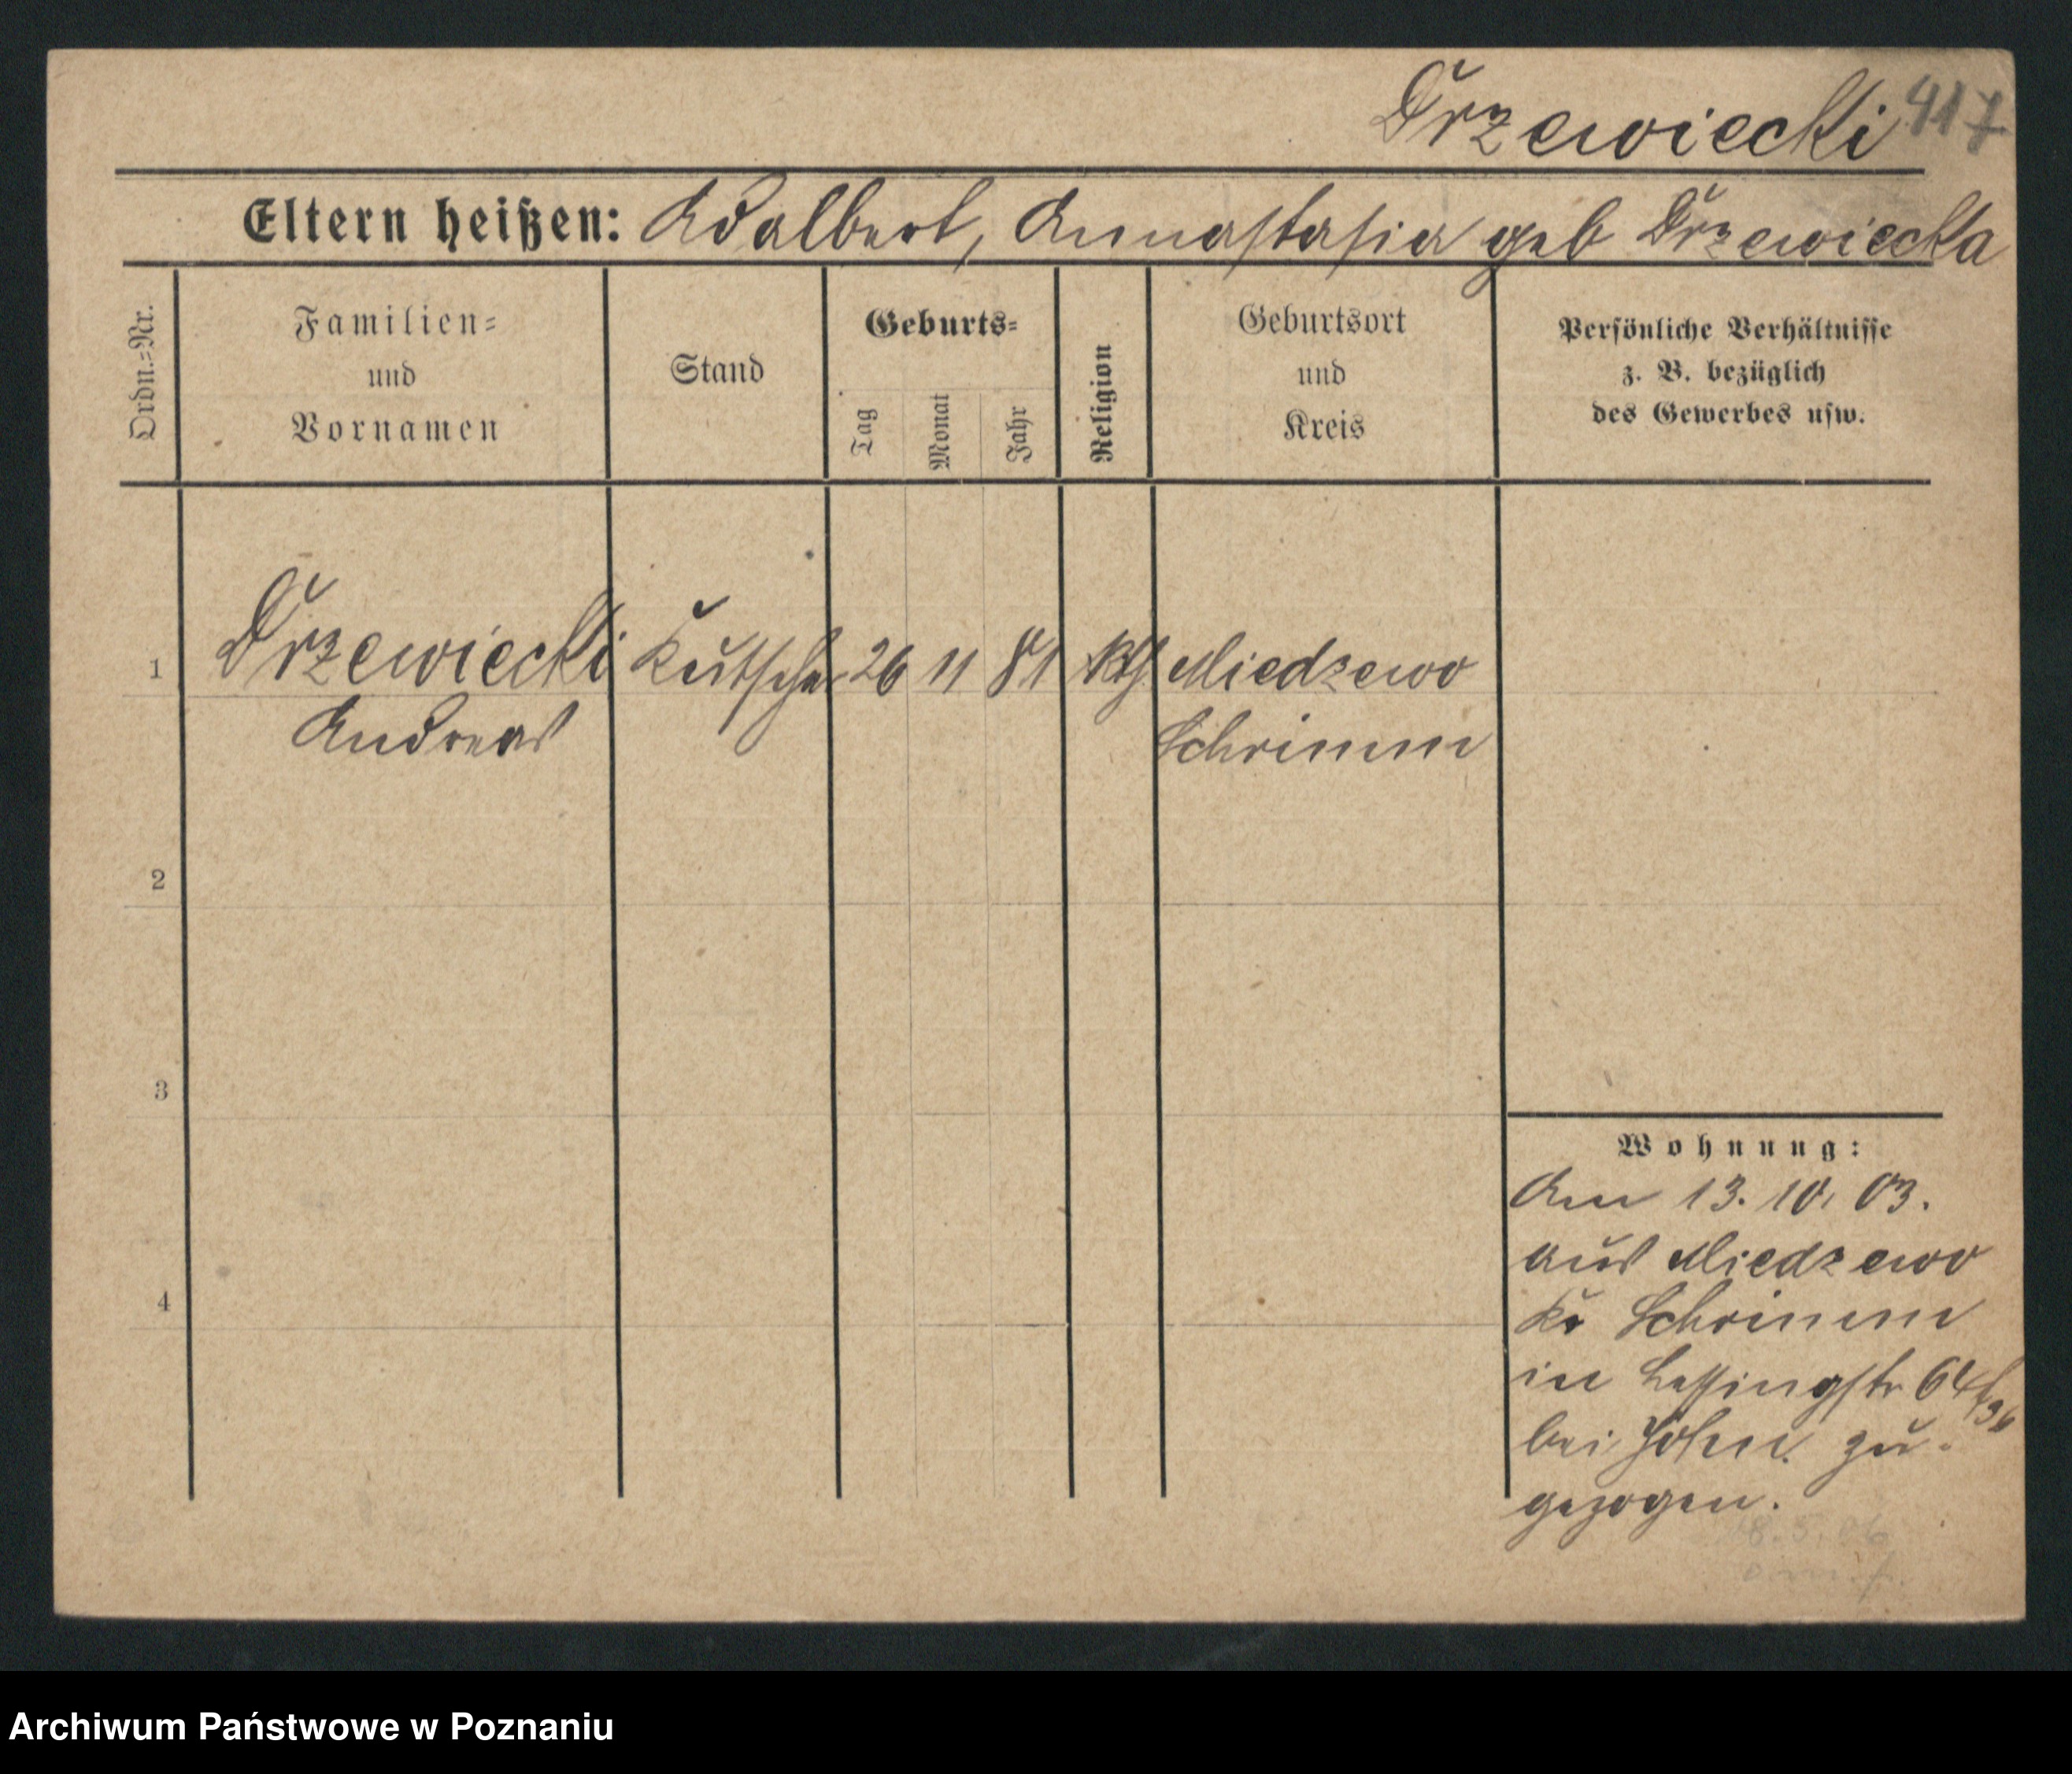 Drzewiecki 417
Eltern heißen: Adalbert, Annastasia geb Drzewiecka
Ordn.=Nr.
Familien=
und
Vornamen
Stand
Geburts=
Tag
Monat
Jahr
Religion
Geburtsort
und
Kreis
Persönliche Verhältnisse
z. B. bezüglich
des Gewerbes usw.
1 Drzewiecki Kutscher 26 11 81 kth Miedzewo
Andreas Schrimm
2
3
4
Wohnung:
Am 13. 10. 03.
aus Miedzewo
Kr Schrimm
in Lessingstr 64
bei John zu-
gezogen.
18.5.06
Archiwum Państwowe w Poznaniu